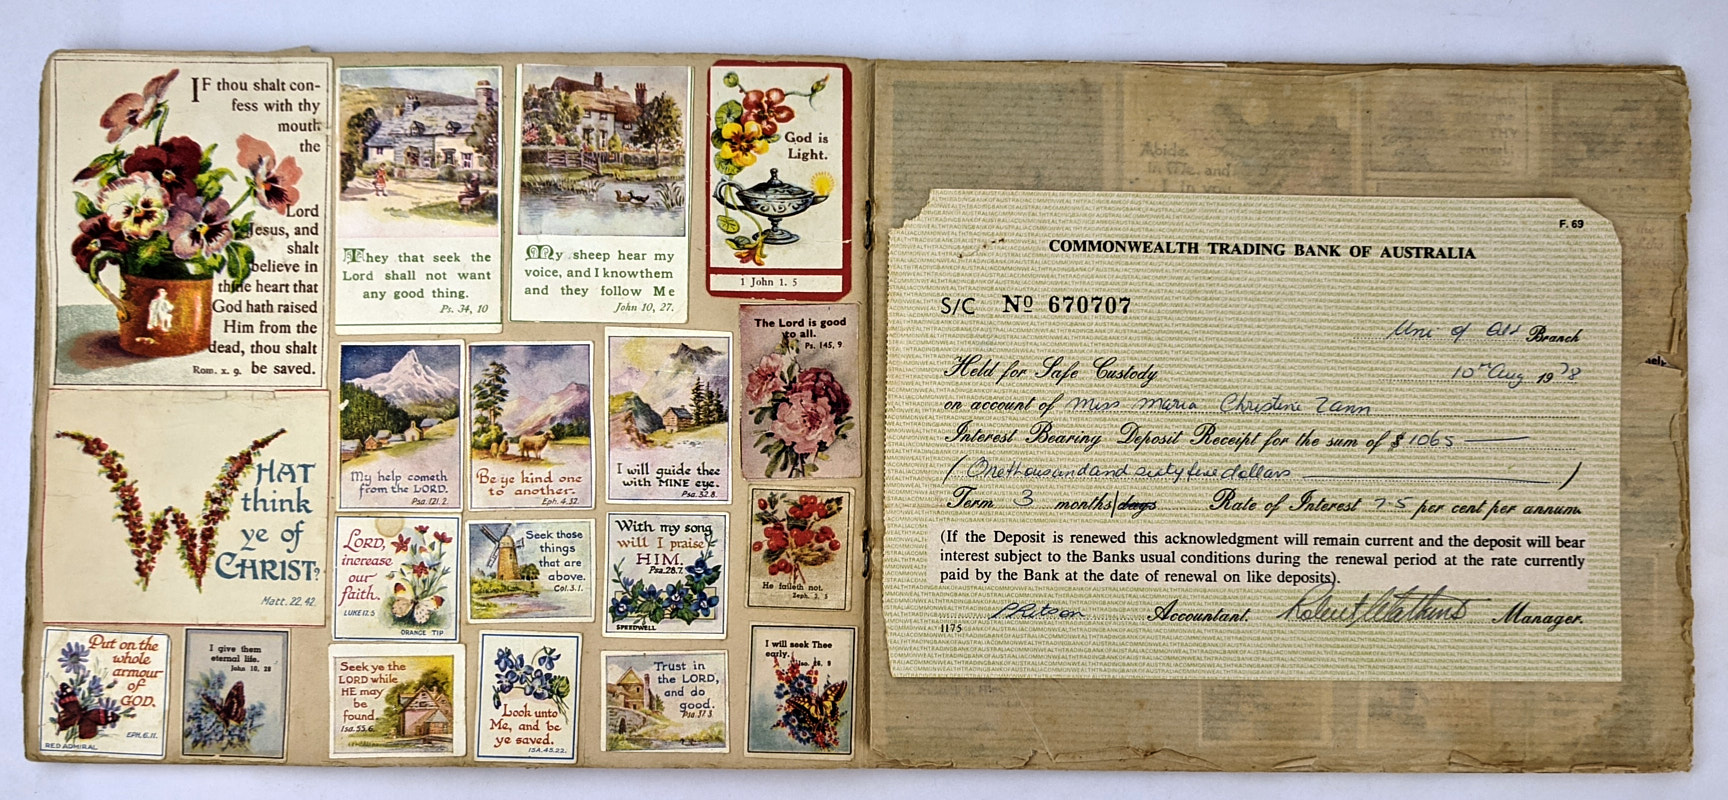 IF thou shalt con-
fess with thy
mouth
the
Lord
Jesus, and
shalt
believe in
thine heart that
God hath raised
Him from the
dead, thou shalt
Rom. x. 9. be saved.
They that seek the
Lord shall not want
any good thing.
Ps. 34, 10
My sheep hear my
voice, and I know them
and they follow Me
John 10, 27.
God is
Light.
1 John 1. 5
WHAT
think
ye of
CHRIST?
Matt. 22. 42.
My help cometh
from the LORD.
Psa. 121. 2.
Be ye kind one
to another.
Eph. 4. 32.
I will guide thee
with MINE eye.
Psa. 32. 8.
The Lord is good
to all.
Ps. 145, 9
LORD,
increase
our
faith.
LUKE 17. 5
ORANGE TIP
Seek those
things
that are
above.
Col. 3. 1.
With my song
will I praise
HIM.
Psa. 28. 7.
SPEEDWELL
He faileth not.
Zeph. 3, 5
Put on the
whole
armour
of
GOD.
EPH. 6. 11.
RED ADMIRAL
I give them
eternal life.
John 10, 28
Seek ye the
LORD while
HE may
be
found.
Isa. 55. 6.
Look unto
Me, and be
ye saved.
ISA. 45. 22.
Trust in
the LORD,
and do
good.
Psa. 37. 3.
I will seek Thee
early.
Abide
in Me, and
F. 69
COMMONWEALTH TRADING BANK OF AUSTRALIA
S/C No 670707
Uni of Qld Branch
Held for Safe Custody 10th Aug 1978
on account of Miss Maria Christine Zann
Interest Bearing Deposit Receipt for the sum of $ 1065
(One thousand and sixty five dollars)
Term 3 months/days Rate of Interest 7.5 per cent per annum.
(If the Deposit is renewed this acknowledgment will remain current and the deposit will bear
interest subject to the Banks usual conditions during the renewal period at the rate currently
paid by the Bank at the date of renewal on like deposits).
Accountant. Manager.
1175